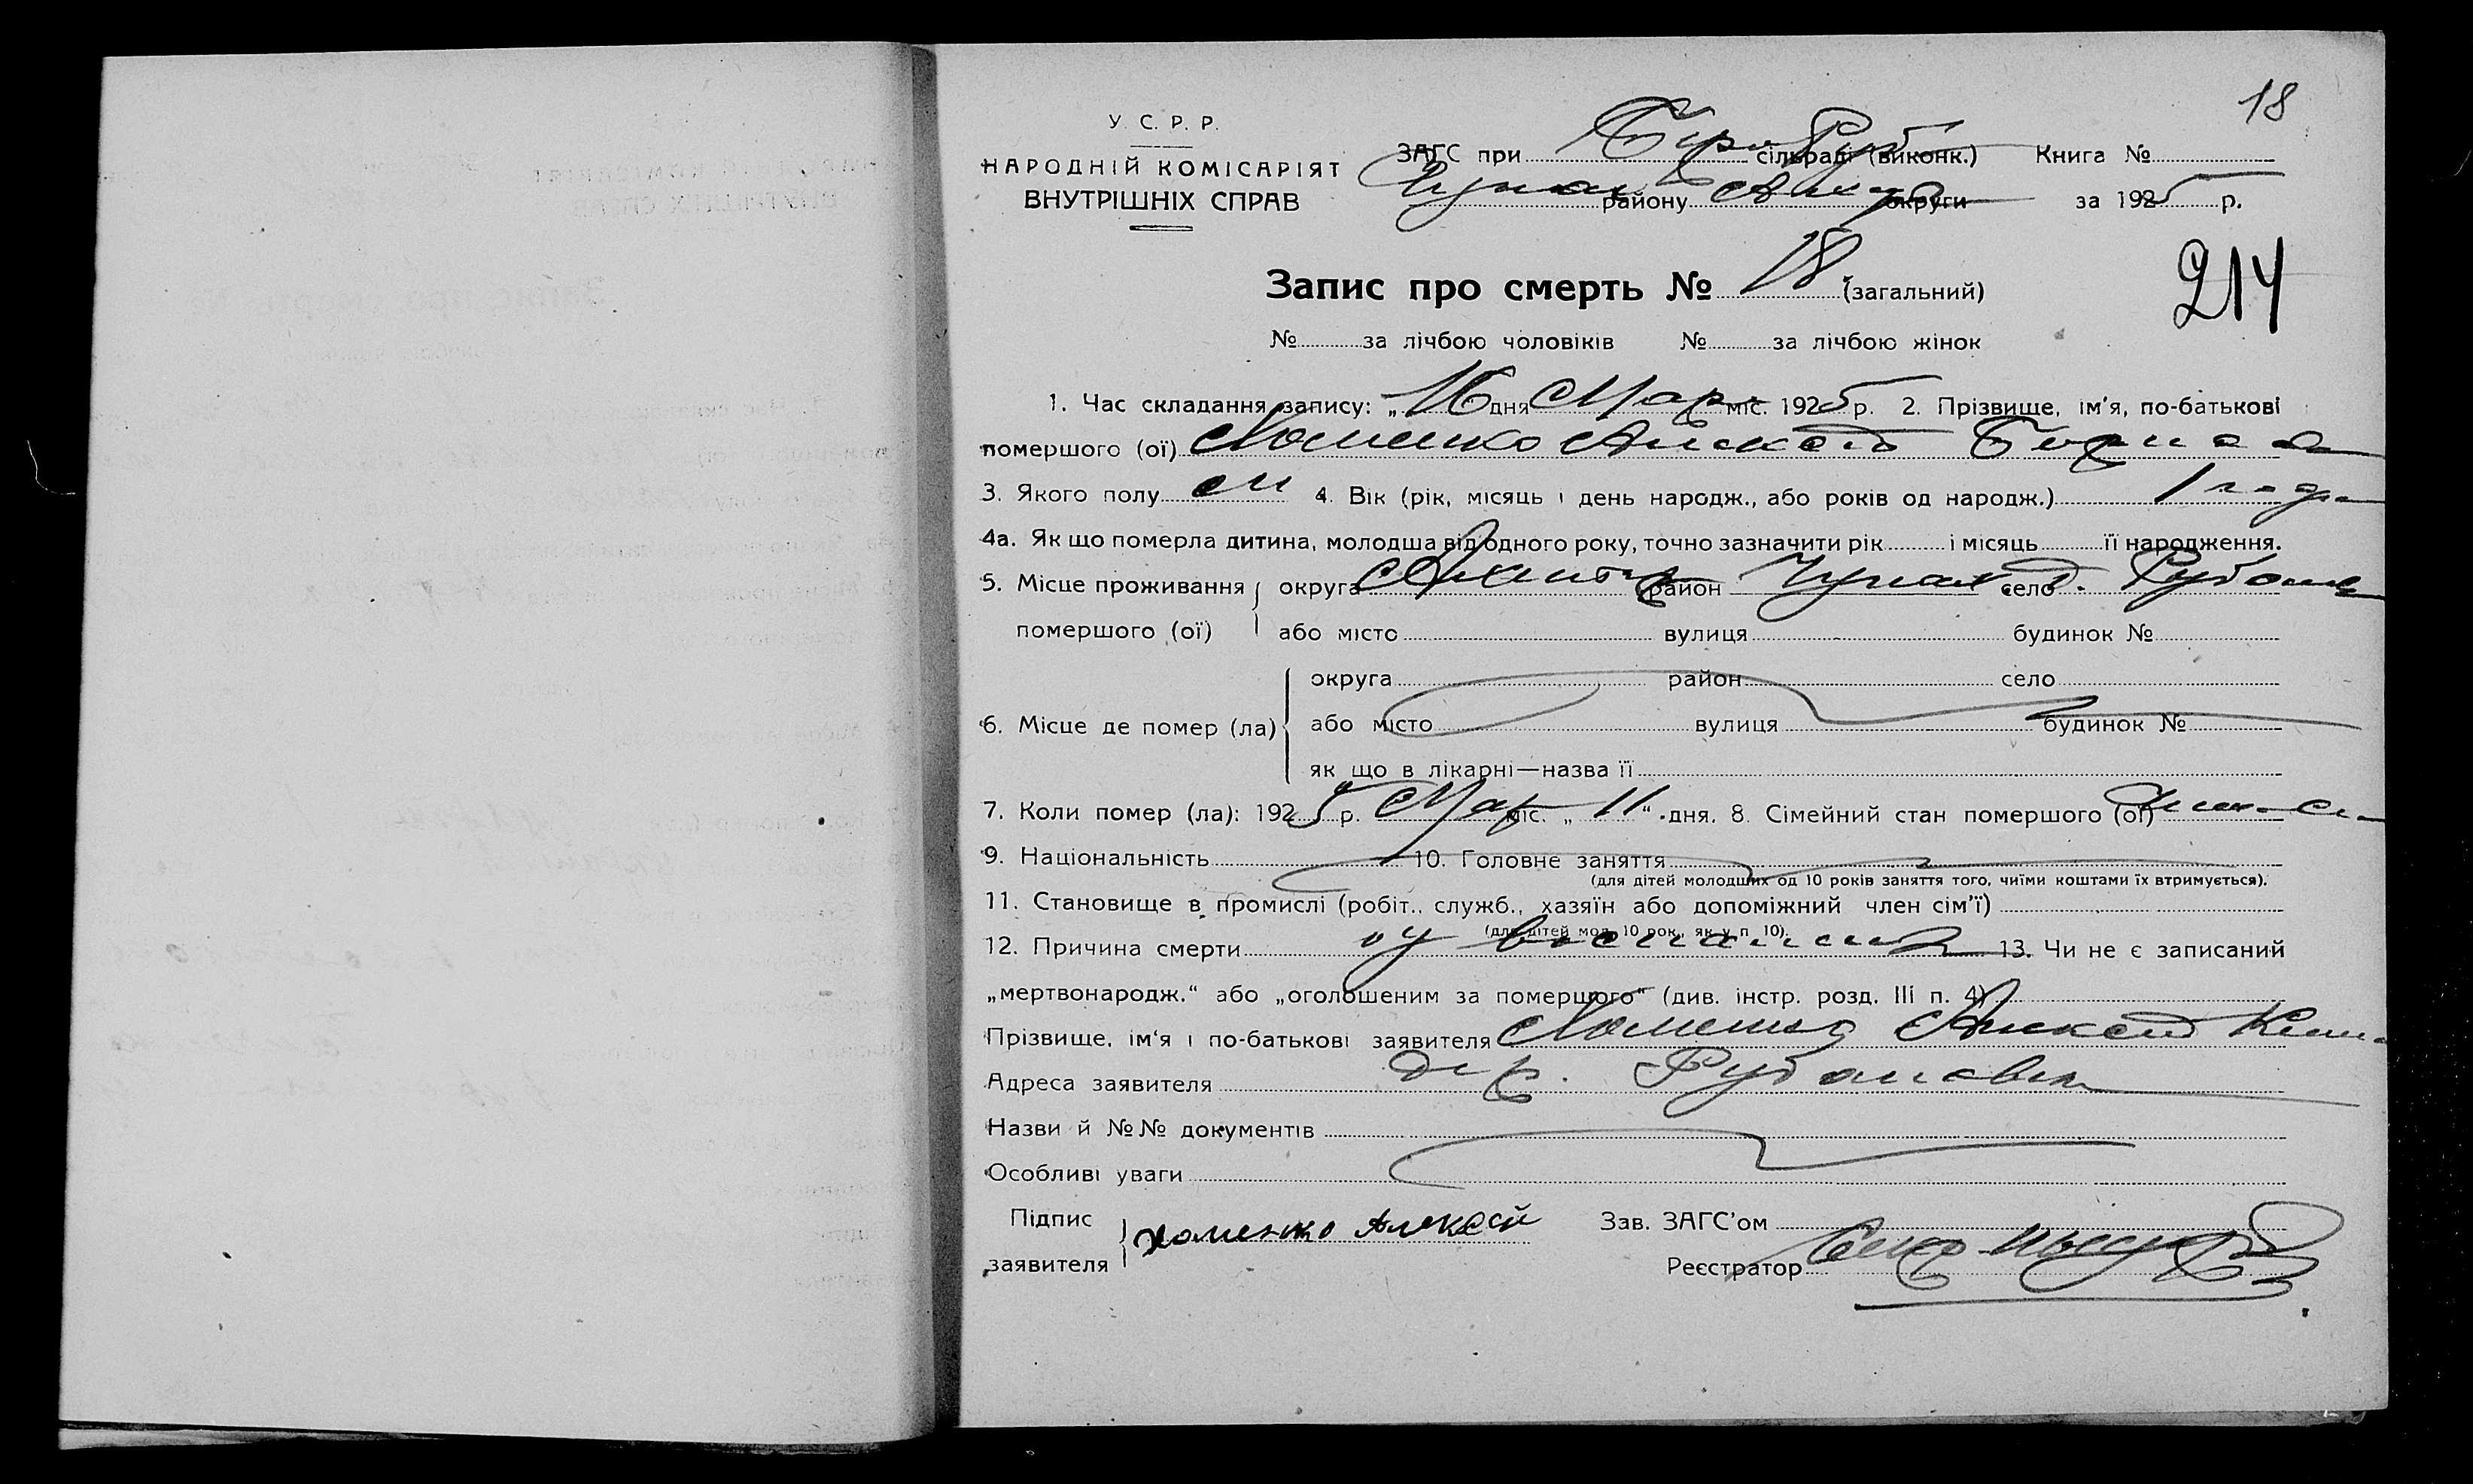 18
У. С. Р. Р.
НАРОДНІЙ КОМІСАРІЯТ
ВНУТРІШНІХ СПРАВ
ЗАГС при сільраді (виконк.) Книга №
району округи за 1925 р.
Запис про смерть № 18 (загальний)
214
№ за лічбою чоловіків № за лічбою жінок
1. Час складання запису: „16 дня Мар міс. 1925 р. 2. Прізвище, ім'я, по-батькові
помершого (ої) Хоменко
3. Якого полу м 4. Вік (рік, місяць і день народж., або років од народж.) 1 года
4а. Як що померла дитина, молодша від одного року, точно зазначити рік і місяць її народження.
5. Місце проживання округа район село
помершого (ої) або місто вулиця будинок №
округа район село
6. Місце де помер (ла) або місто вулиця будинок №
як що в лікарні—назва її
7. Коли помер (ла): 1925 р. Мар міс. „11“ дня. 8. Сімейний стан помершого (ої)
9. Національність 10. Головне заняття
(для дітей молодших од 10 років заняття того, чиїми коштами їх втримується).
11. Становище в промислі (робіт., служб., хазяїн або допоміжний член сім'ї)
(для дітей мол. 10 рок., як у п. 10).
12. Причина смерти 13. Чи не є записаний
„мертвонародж.“ або „оголошеним за померщого“ (див. інстр. розд. III п. 4)
Прізвище, ім'я і по-батькові заявителя Хоменко
Адреса заявителя дер. Рубановка
Назви й №№ документів
Особливі уваги
Підпис
заявителя Хоменко Алексей
Зав. ЗАГС'ом
Реєстратор